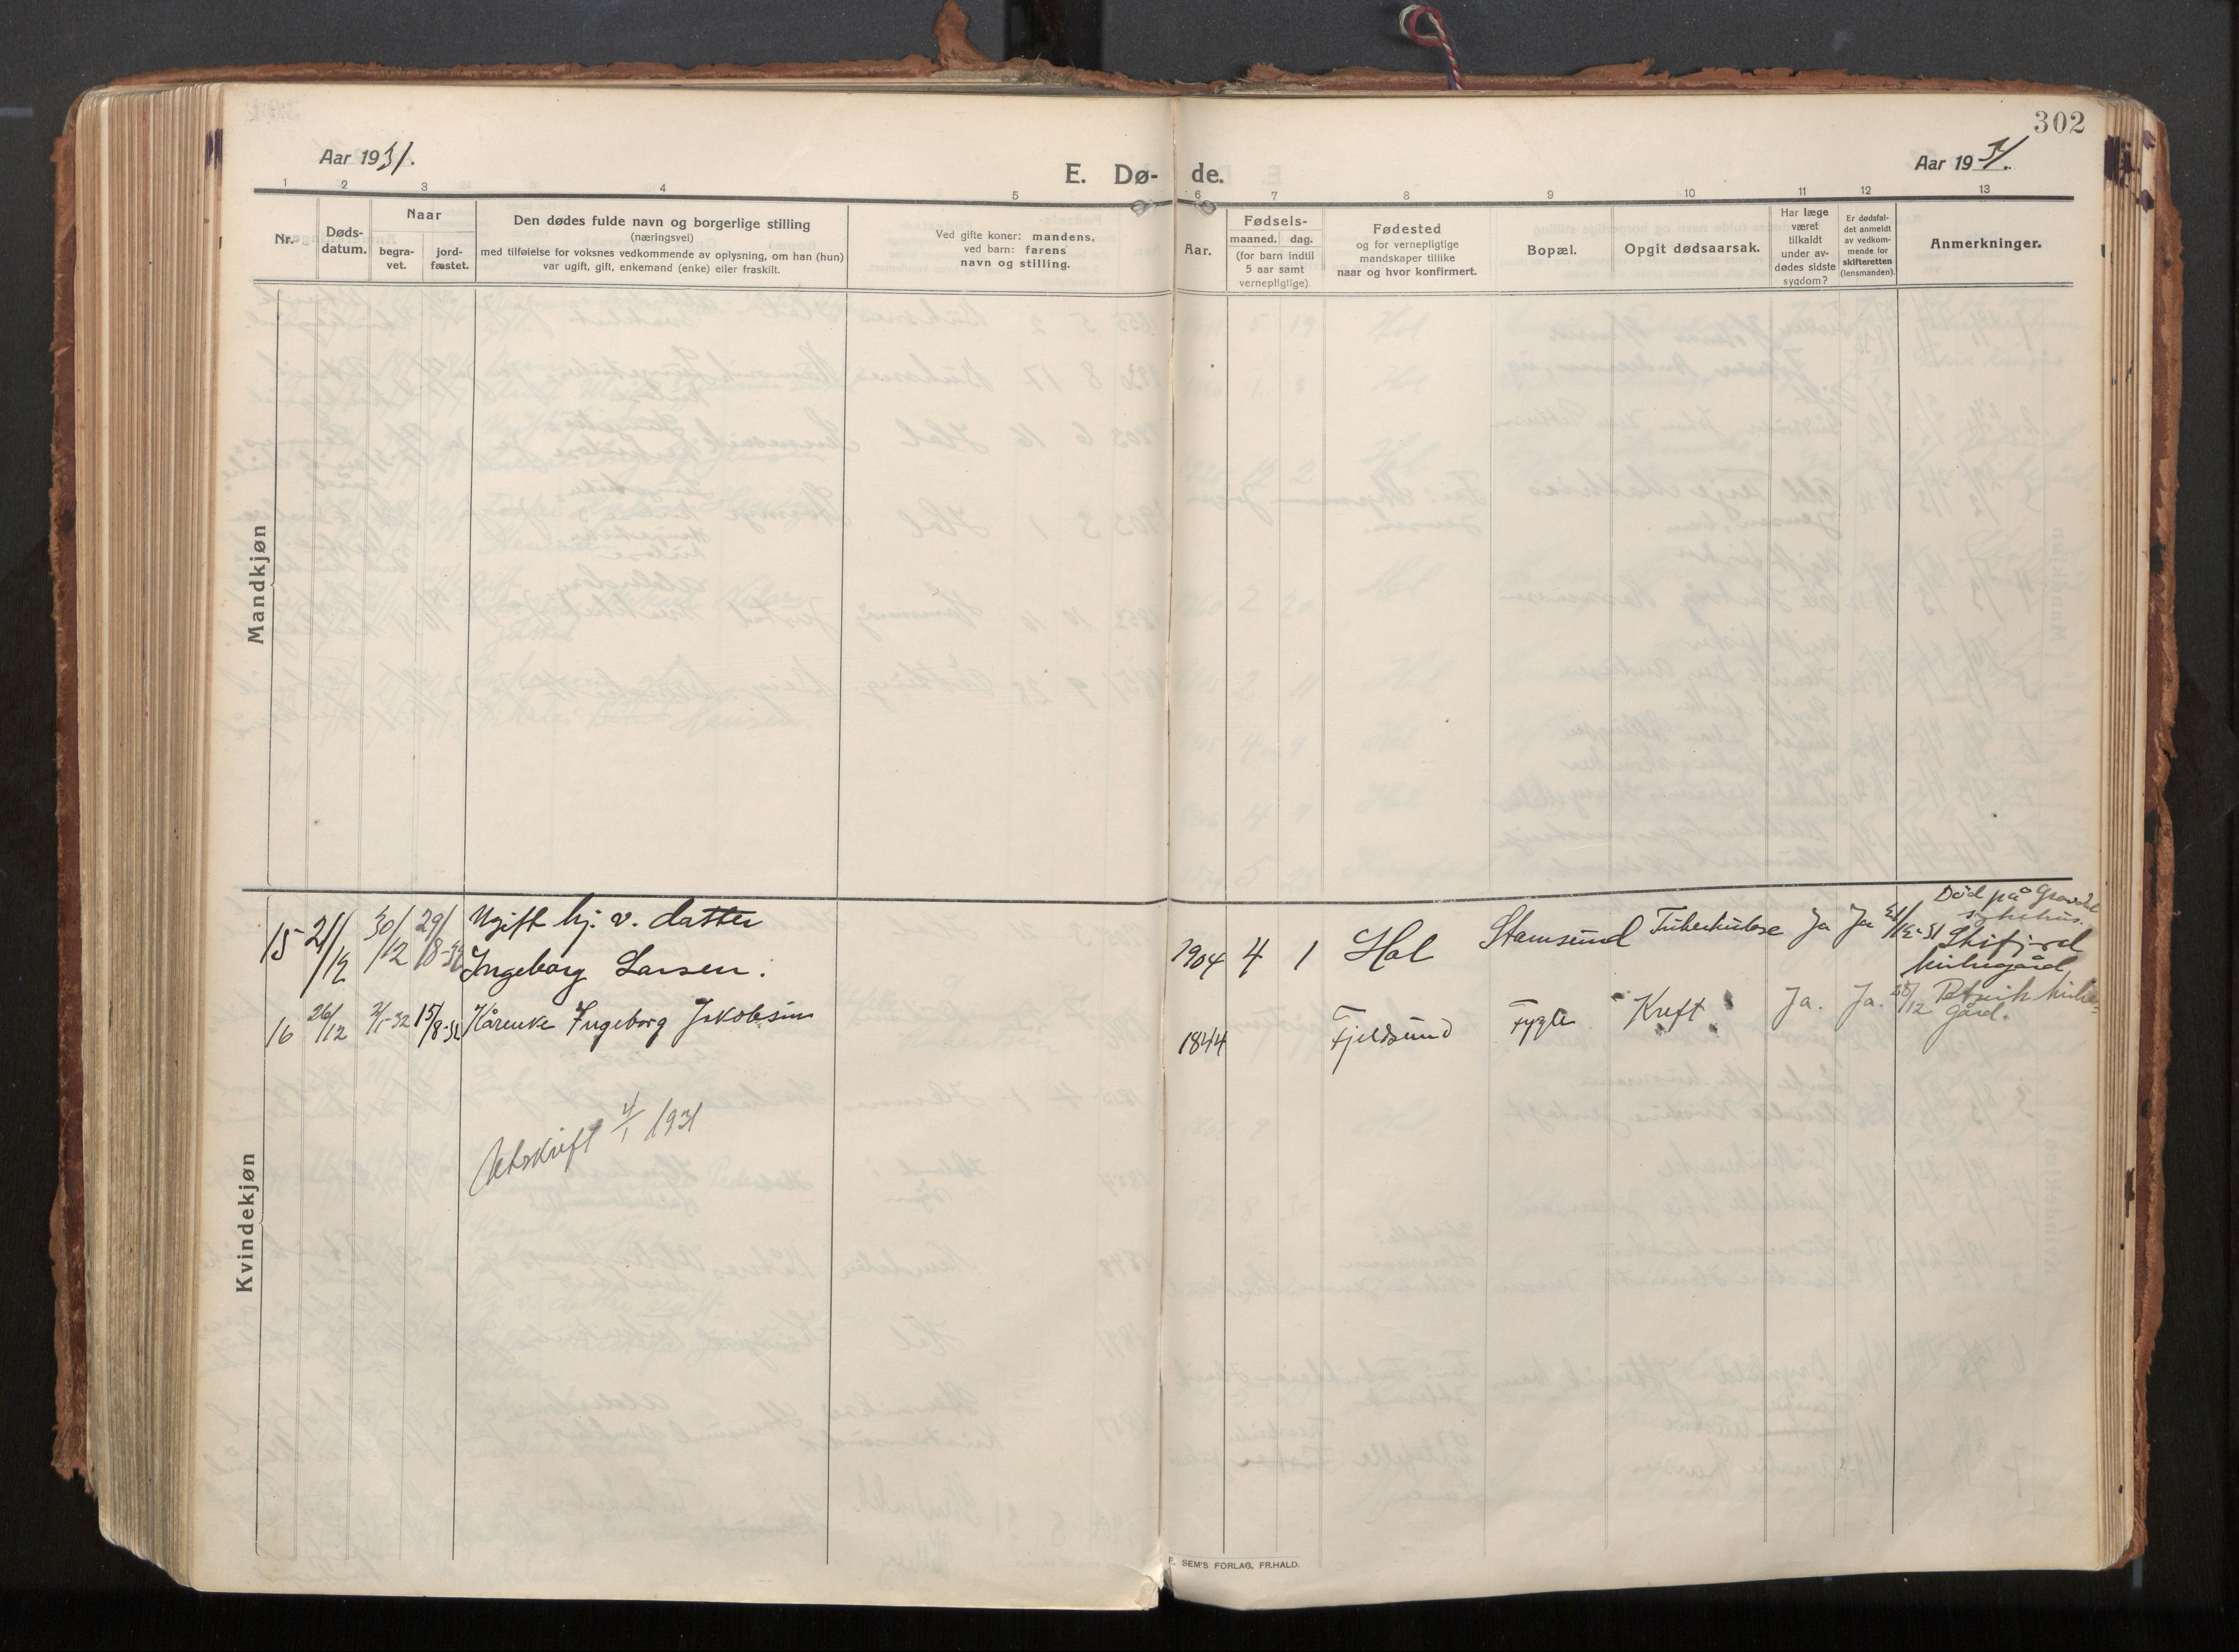 302
Aar 1931.
E. Dø- de.
Aar 1931.
1 2 3 4 5 6 7 8 9 10 11 12 13
Nr.
Døds-
datum.
Naar
begra-
vet.
jord-
fæstet.
Den dødes fulde navn og borgerlige stilling
(næringsvei)
med tilføielse for voksnes vedkommende av oplysning, om han (hun)
var ugift, gift, enkemand (enke) eller fraskilt.
Ved gifte koner: mandens,
ved barn: farens
navn og stilling.
Aar.
Fødsels-
maaned. dag.
(for barn indtil
5 aar samt
vernepligtige)
Fødested
og for vernepligtige
mandskaper tillike
naar og hvor konfirmert.
Bopæl.
Opgit dødsaarsak.
Har læge
været
tilkaldt
under av-
dødes sidste
sygdom?
Er dødsfal-
det anmeldt
av vedkom-
mende for
skifteretten
(lensmanden).
Anmerkninger.
Mandkjøn
Kvindekjøn
15 21/12 30/12 Ugift hj. v. datter
Ingeborg Larsen.
1904 4 1 Hol Stamsund Tuberkulose Ja Ja
Død på Gravdal
sykehus.
kirkegård
16 26/12 2/1-32 15/8-32 Kårenke Ingeborg Jakobsen
1844 Fjeldsund Fygle Kreft Ja. Ja. 28/12 Petvik kirke-
gård.
Utskrift 4/1 1931
E. SEM'S FORLAG, FR.HALD.